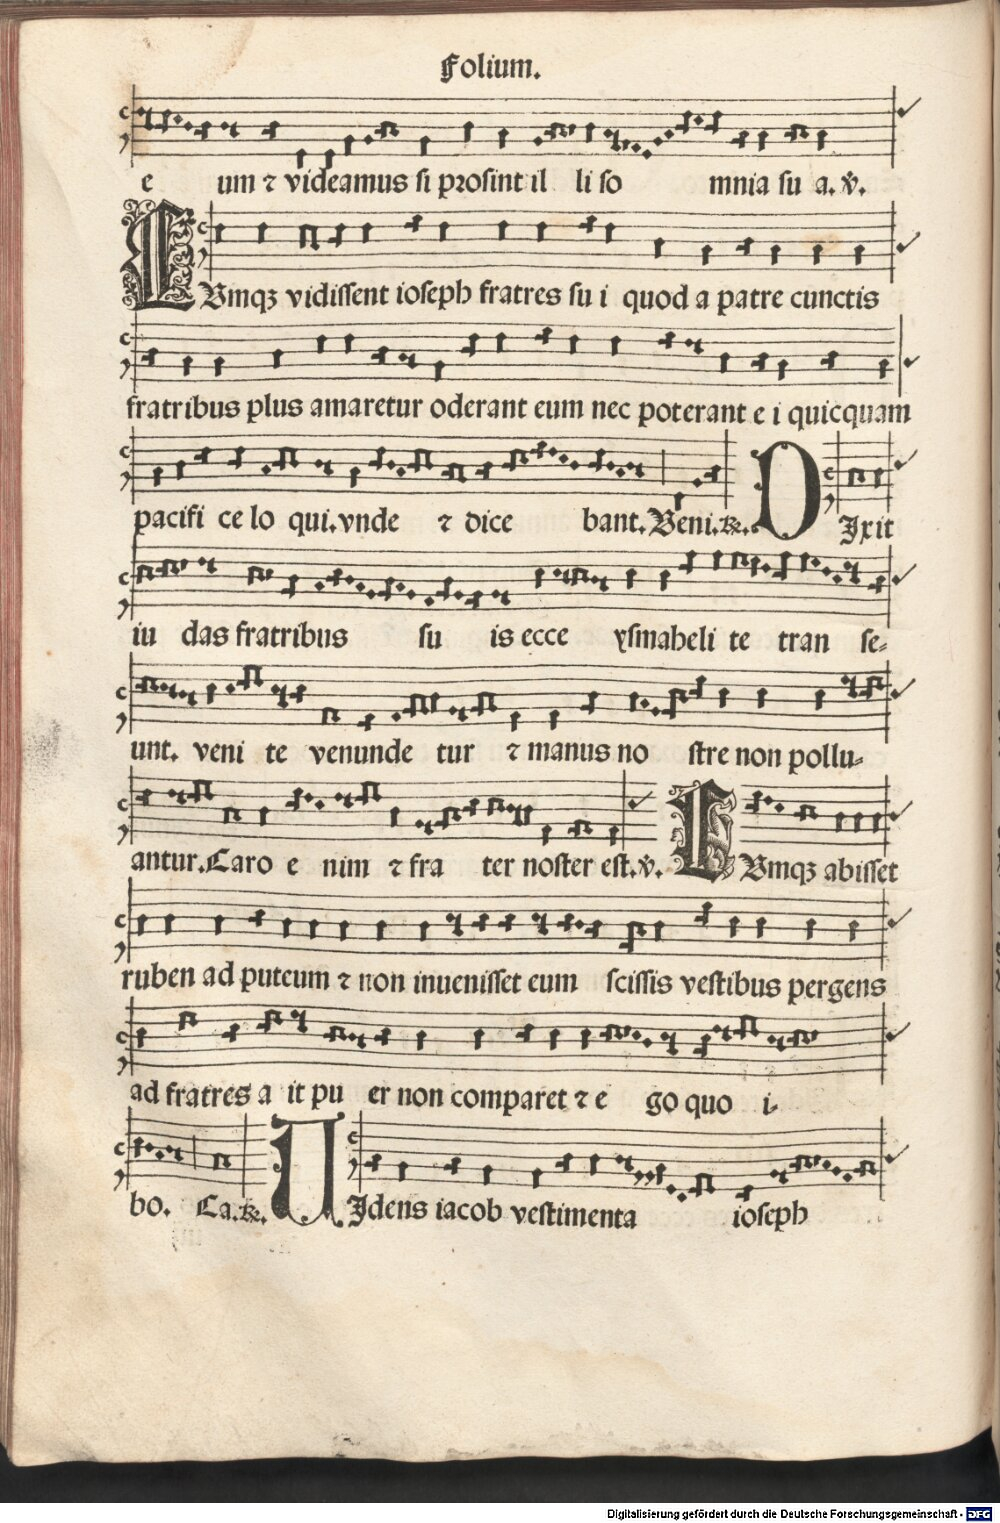 Folium.
e um ⁊ videamus si prosint il li so mnia su a. v̇.
CVmqꝫ vidissent ioseph fratres su i quod a patre cunctis
fratribus plus amaretur oderant eum nec poterant e i quicquam
pacifi ce lo qui. vnde ⁊ dice bant. Veni. ⁊c. DIxit
iu das fratribus su is ecce ysmaheli te tran se⸗
unt. veni te venunde tur ⁊ manus no stre non pollu⸗
antur. Caro e nim ⁊ fra ter noster est. v̇. CVmqꝫ abisset
ruben ad puteum ⁊ non inuenisset eum scissis vestibus pergens
ad fratres a it pu er non comparet ⁊ e go quo i⸗
bo. Ca. ⁊c. VIdens iacob vestimenta ioseph
Digitalisierung gefördert durch die Deutsche Forschungsgemeinschaft - DFG